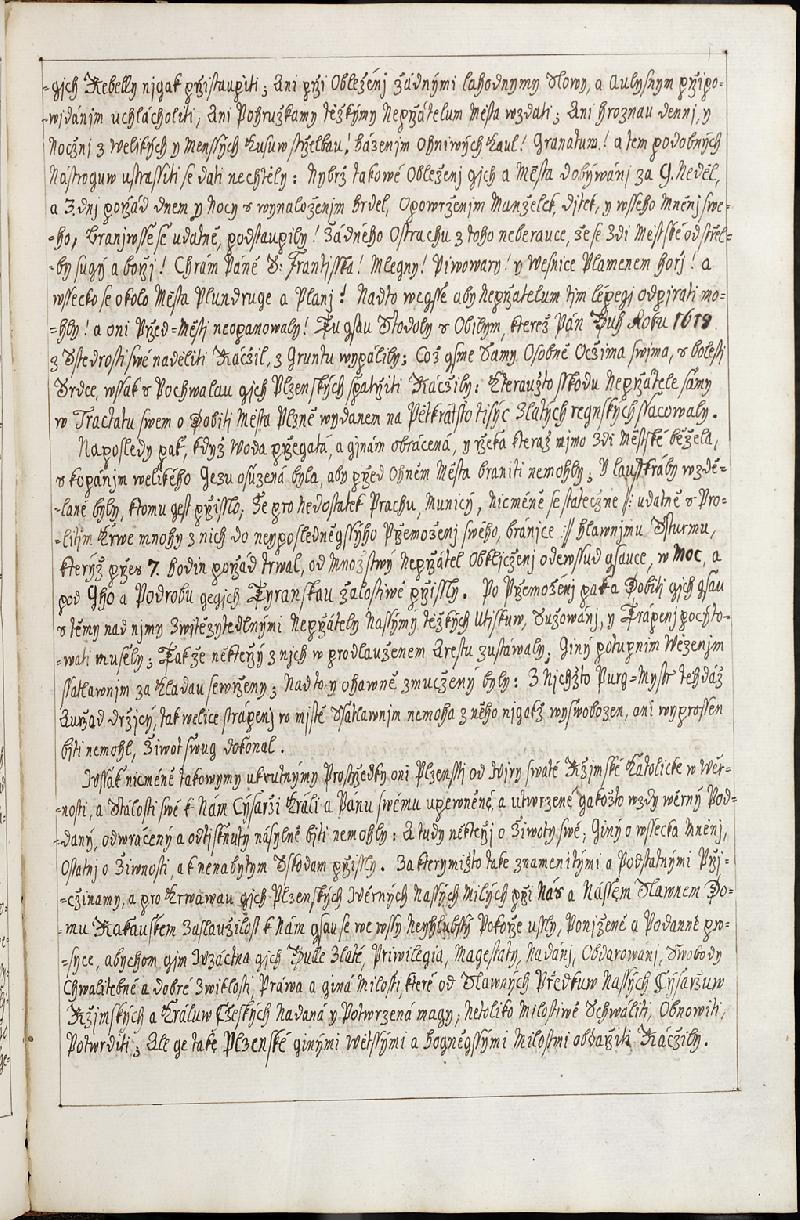 -gich Rebelly nigak přistaupiti; Ani při Obleženj žádnými lahodnymy Slowy, a Aulisnym připo-
-wjdánjm uchlácholiti, Ani Pohružkamy těžkýmy Nepřátelum Města wzdati; Ani hroznau dennj, y
Nočnj z Welikých y Menssých Kusuw střelbau! házenjm Ohniwých Kaul! Granátum! a tem podobných
Nástroguw ustrassiti se dati nechtěly: Nýbrž takowé Obleženj gich a Města dobýwánj za 9. Neděl,
a 3. dni pořád dnem y Nocy s wynaloženjm hrdel, Opowrženjm Manželek, djtek, y wsseho Mněnj swé-
-ho, branjwsse se udatně, podstaupily! Žádného Ostrachu z toho neberauce, že se Zdi Městské od střel-
-by sugj a bořj! Chrám Páně S. Frantisska! Mlegny! Piwowary! y Wesnice Plamenem hořj! a
wssecko se okolo Města Plundruge a Planj! Nadto wegsse aby Nepřátelum tjm lépegj odpjrati mo-
-hly! a oni Před-Městj neopanowaly! Tu gsau Stodoly s Obilym, kterež Pán Buh Roku 1618
z Sstědrosti swé naděliti Ráčžil, z Gruntu wypálily; Což gsme Samy Osobně Očžima swýma, s bolestj
Srdce, wssak s Pochwalau gich Plzenských spatřiti Ráčžily: Kteraužto sskodu Nepřátele samy
w Tractatu swem o Dobitj Města Plzně wydanem na Pětkrátsto tisýc Zlatých regnských ssacowaly.
Naposledy pak, když Woda přegatá, a ginám obrácená, y řzeka kteráž mjmo Zdi Městské běžela,
s kopánjm welikého Gezu osuzená byla, aby před Ohněm Města braniti nemohly; Y lausskráby wzdě-
-lané byly, ktomu gest přisslo; Že pro Nedostatek Prachu, Municý, Nicméně se statečzně /: udatně s Pro-
-litjm Krwe mnohy z nich do neyposledněgssýho Přemoženj swého, bránjce :/ hlawnjmu Ssturmu,
kterýž přes 7. hodin pořád trwal, od Množstwj Nepřátel Obkljčženj odewssud gsauce, w Moc, a
pod Gho a Porobu gegich Tyranskau žalostiwě přissly. Po Přemoženj pak a Dobitj gich gsau
s těmy nad nimy Zwitězytedlnými Nepřátely Nassýmy těžkých Utiskuw, Sužowánj, y Trápenj pocyťo-
-wati musely; Tak že někteřj z nich w prodlauženem Arestu zustáwaly; Ginj potupnjm Wězenjm
ssatlawnjm za Kladau sewrženy; Nadto y ohawně zmučženy byly: Z Nichžto Purg-Mystr tehdáž
Auřad držjcý, tak welice strápenj w mjstě Ssatlawnjm nemoha z něho nigakž wyswobozen, ani wyprossen
býti nemohl, Žiwot swug dokonal.
Wssak nicméně takowymy ukrutnýmy Prostředky oni Plzensstj od Wjry swaté Ržjmské Katolické w Wěr-
-nosti, a Stálosti swé k Nám Cýsařži Králi a Pánu swému uperoněné a utwrzené gakožto wždy wěrný Pod-
-daný, odwrácený a odtisknutý násylně býti nemohly: A tudy někteřj o Žiwoty swé; Ginj o wssecka Mněnj,
Ostatnj o Žiwnosti, a k nenabytým Sskodam přissly. Za kterymižto také znamenitými a Podstatnými Při-
-čžinamy, a pro Krwawau gich Plzenských Wěrných Nassých Milých při Nás a Nassem Slawnem Do-
-mu Rakauskem Zaslaužilost k Nám gsau se we wssý Neyhlubssý Pokoře utekly, Ponjženě a Poddanně pro-
-sýce, abychom gjm Wzáctna gich Bulle Zlaté, Priwilegia, Magestáty, Nadánj, Obdarowanj, Swobody
Chwalitebné a dobré Zwiklosti, Práwa a giná Milosti, které od Slawných Předkuw Nassých Cýsařzuw
Ržjmských a Králuw Čžeských Nadaná y Potwrzená magy, Netoliko Milostiwě Schwáliti, Obnowiti,
Potwrditi; Ale ge také Plzenské ginými Wětssými a hogněgssými Milostmi obdařiti Ráčžily.